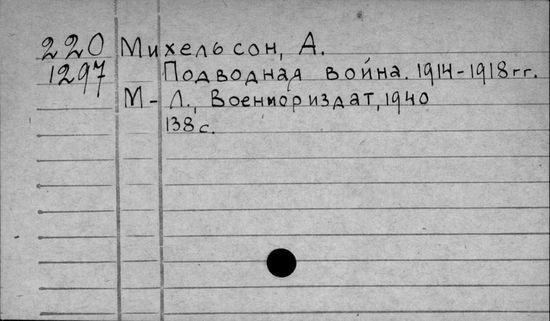 220 Михельсон, А.
1297 Подводная война. 1914-1918 гг.
М-Л., Военмориздат, 1940
138 с.